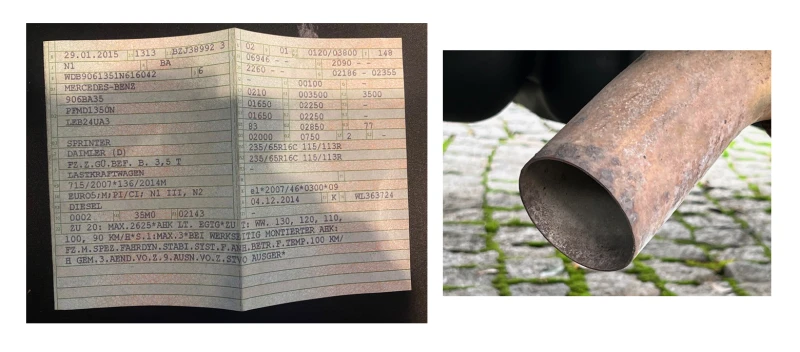 29.01.2015 1313 BZJ38992 3
N1 BA
WDB9061351N616042 6
MERCEDES-BENZ
906BA35
PFMD1350N
LEB24UA3
SPRINTER
DAIMLER (D)
FZ.Z.GÜ.BEF. B. 3,5 T
LASTKRAFTWAGEN
715/2007*136/2014M
EURO5;M;PI/CI; N1 III, N2
DIESEL
0002 35M0 02143
02 01 0120/03800 148
06946 - - 2090 - -
2260 - - 02186 - 02355
- 00100 -
0210 003500 3500
01650 02250 -
01650 02250 -
83 02850 77
02000 0750 2 -
235/65R16C 115/113R
235/65R16C 115/113R
-
-
e1*2007/46*0300*09
04.12.2014 K WL363724
-
ZU 20: MAX.2625*AHK LT. EGTG*ZU T: WW. 130, 120, 110,
100, 90 KM/H*S.1:MAX.3*BEI WERKSEITIG MONTIERTER AHK:
FZ.M.SPEZ.FAHRDYN.STABI.SYST.F.ANH.BETR.F.TEMP.100 KM/
H GEM.3.AEND.VO.Z.9.AUSN.VO.Z.STVO AUSGER*